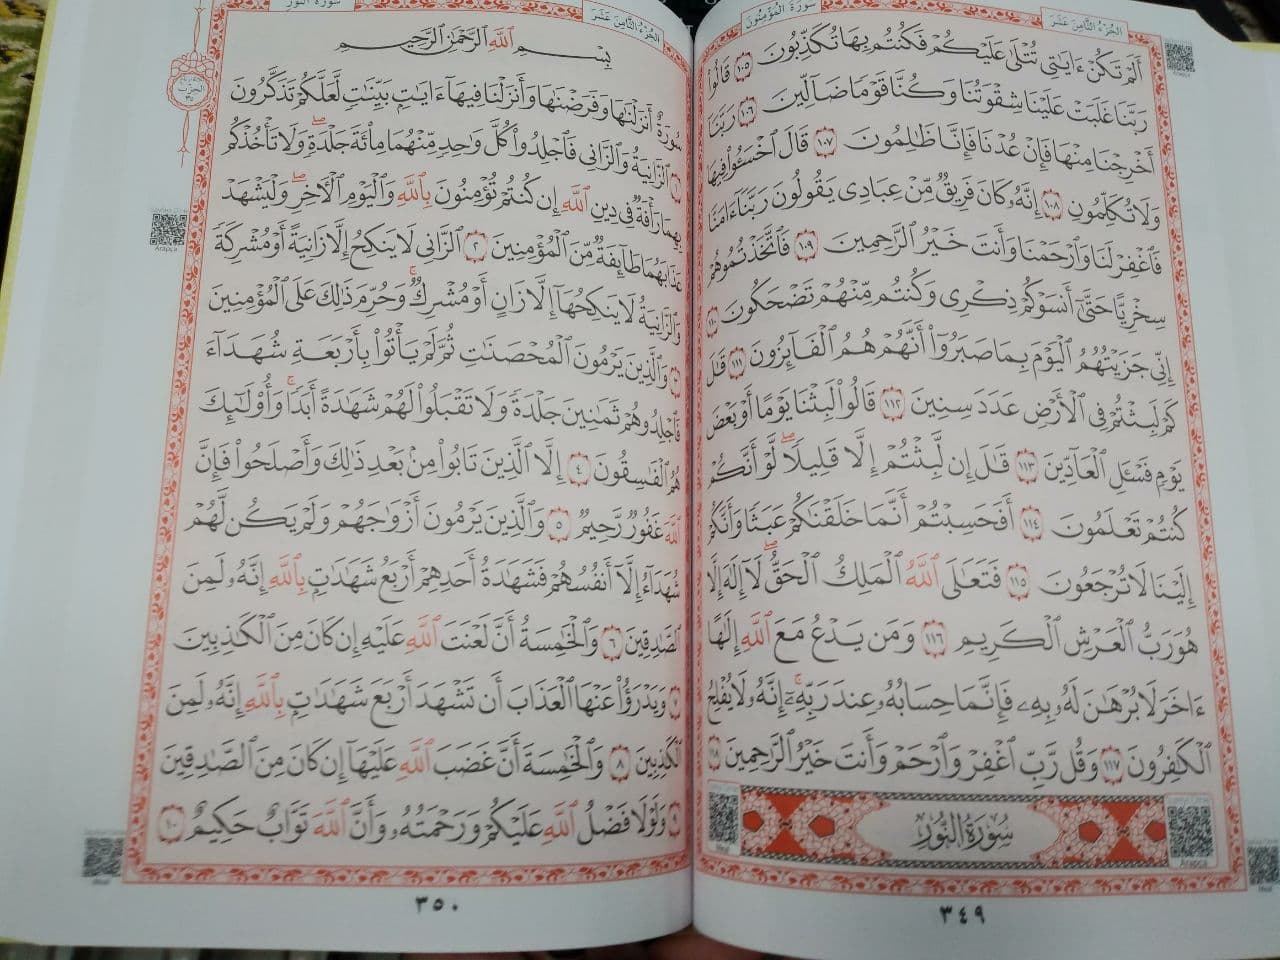 سورة المؤمنون
الجزء الثامن عشر
أَلَمْ تَكُنْ ءَايَٰتِي تُتْلَىٰ عَلَيْكُمْ فَكُنتُم بِهَا تُكَذِّبُونَ ١٠٥ قَالُوا۟
رَبَّنَا غَلَبَتْ عَلَيْنَا شِقْوَتُنَا وَكُنَّا قَوْمًا ضَآلِّينَ ١٠٦ رَبَّنَآ
أَخْرِجْنَا مِنْهَا فَإِنْ عُدْنَا فَإِنَّا ظَٰلِمُونَ ١٠٧ قَالَ ٱخْسَـُٔوا۟ فِيهَا
وَلَا تُكَلِّمُونِ ١٠٨ إِنَّهُۥ كَانَ فَرِيقٌ مِّنْ عِبَادِي يَقُولُونَ رَبَّنَآ ءَامَنَّا
فَٱغْفِرْ لَنَا وَٱرْحَمْنَا وَأَنتَ خَيْرُ ٱلرَّٰحِمِينَ ١٠٩ فَٱتَّخَذْتُمُوهُمْ
سِخْرِيًّا حَتَّىٰٓ أَنسَوْكُمْ ذِكْرِي وَكُنتُم مِّنْهُمْ تَضْحَكُونَ ١١٠
إِنِّي جَزَيْتُهُمُ ٱلْيَوْمَ بِمَا صَبَرُوٓا۟ أَنَّهُمْ هُمُ ٱلْفَآئِزُونَ ١١١ قَٰلَ
كَمْ لَبِثْتُمْ فِي ٱلْأَرْضِ عَدَدَ سِنِينَ ١١٢ قَالُوا۟ لَبِثْنَا يَوْمًا أَوْ بَعْضَ
يَوْمٍ فَسْـَٔلِ ٱلْعَآدِّينَ ١١٣ قَٰلَ إِن لَّبِثْتُمْ إِلَّا قَلِيلًا ۖ لَّوْ أَنَّكُمْ
كُنتُمْ تَعْلَمُونَ ١١٤ أَفَحَسِبْتُمْ أَنَّمَا خَلَقْنَٰكُمْ عَبَثًا وَأَنَّكُمْ
إِلَيْنَا لَا تُرْجَعُونَ ١١٥ فَتَعَٰلَى ٱللَّهُ ٱلْمَلِكُ ٱلْحَقُّ ۖ لَآ إِلَٰهَ إِلَّا
هُوَ رَبُّ ٱلْعَرْشِ ٱلْكَرِيمِ ١١٦ وَمَن يَدْعُ مَعَ ٱللَّهِ إِلَٰهًا
ءَاخَرَ لَا بُرْهَٰنَ لَهُۥ بِهِۦ فَإِنَّمَا حِسَابُهُۥ عِندَ رَبِّهِۦٓ ۚ إِنَّهُۥ لَا يُفْلِحُ
ٱلْكَٰفِرُونَ ١١٧ وَقُل رَّبِّ ٱغْفِرْ وَٱرْحَمْ وَأَنتَ خَيْرُ ٱلرَّٰحِمِينَ ١١٨
سُورَةُ النُّورِ
Arapça
Meal
٣٤٩
الجزء الثامن عشر
سورة النور
بِسْمِ ٱللَّهِ ٱلرَّحْمَٰنِ ٱلرَّحِيمِ
سُورَةٌ أَنزَلْنَٰهَا وَفَرَضْنَٰهَا وَأَنزَلْنَا فِيهَآ ءَايَٰتٍۭ بَيِّنَٰتٍ لَّعَلَّكُمْ تَذَكَّرُونَ
١ ٱلزَّانِيَةُ وَٱلزَّانِي فَٱجْلِدُوا۟ كُلَّ وَٰحِدٍ مِّنْهُمَا مِا۟ئَةَ جَلْدَةٍ ۖ وَلَا تَأْخُذْكُم
بِهِمَا رَأْفَةٌ فِي دِينِ ٱللَّهِ إِن كُنتُمْ تُؤْمِنُونَ بِٱللَّهِ وَٱلْيَوْمِ ٱلْـَٔاخِرِ ۖ وَلْيَشْهَدْ
عَذَابَهُمَا طَآئِفَةٌ مِّنَ ٱلْمُؤْمِنِينَ ٢ ٱلزَّانِي لَا يَنكِحُ إِلَّا زَانِيَةً أَوْ مُشْرِكَةً
وَٱلزَّانِيَةُ لَا يَنكِحُهَآ إِلَّا زَانٍ أَوْ مُشْرِكٌ ۚ وَحُرِّمَ ذَٰلِكَ عَلَى ٱلْمُؤْمِنِينَ
٣ وَٱلَّذِينَ يَرْمُونَ ٱلْمُحْصَنَٰتِ ثُمَّ لَمْ يَأْتُوا۟ بِأَرْبَعَةِ شُهَدَآءَ
فَٱجْلِدُوهُمْ ثَمَٰنِينَ جَلْدَةً وَلَا تَقْبَلُوا۟ لَهُمْ شَهَٰدَةً أَبَدًا ۚ وَأُو۟لَٰٓئِكَ
هُمُ ٱلْفَٰسِقُونَ ٤ إِلَّا ٱلَّذِينَ تَابُوا۟ مِنۢ بَعْدِ ذَٰلِكَ وَأَصْلَحُوا۟ فَإِنَّ
ٱللَّهَ غَفُورٌ رَّحِيمٌ ٥ وَٱلَّذِينَ يَرْمُونَ أَزْوَٰجَهُمْ وَلَمْ يَكُن لَّهُمْ
شُهَدَآءُ إِلَّآ أَنفُسُهُمْ فَشَهَٰدَةُ أَحَدِهِمْ أَرْبَعُ شَهَٰدَٰتٍۭ بِٱللَّهِ إِنَّهُۥ لَمِنَ
ٱلصَّٰدِقِينَ ٦ وَٱلْخَٰمِسَةُ أَنَّ لَعْنَتَ ٱللَّهِ عَلَيْهِ إِن كَانَ مِنَ ٱلْكَٰذِبِينَ
٧ وَيَدْرَؤُا۟ عَنْهَا ٱلْعَذَابَ أَن تَشْهَدَ أَرْبَعَ شَهَٰدَٰتٍۭ بِٱللَّهِ إِنَّهُۥ لَمِنَ
ٱلْكَٰذِبِينَ ٨ وَٱلْخَٰمِسَةَ أَنَّ غَضَبَ ٱللَّهِ عَلَيْهَآ إِن كَانَ مِنَ ٱلصَّٰدِقِينَ
٩ وَلَوْلَا فَضْلُ ٱللَّهِ عَلَيْكُمْ وَرَحْمَتُهُۥ وَأَنَّ ٱللَّهَ تَوَّابٌ حَكِيمٌ ١٠
الحزب
٣٥
Arapça
Meal
٣٥٠